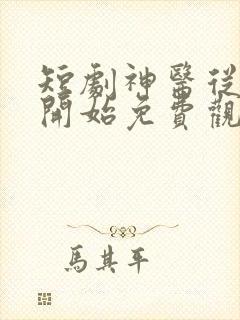 短劇神醫從
開始免費觀
馬其平